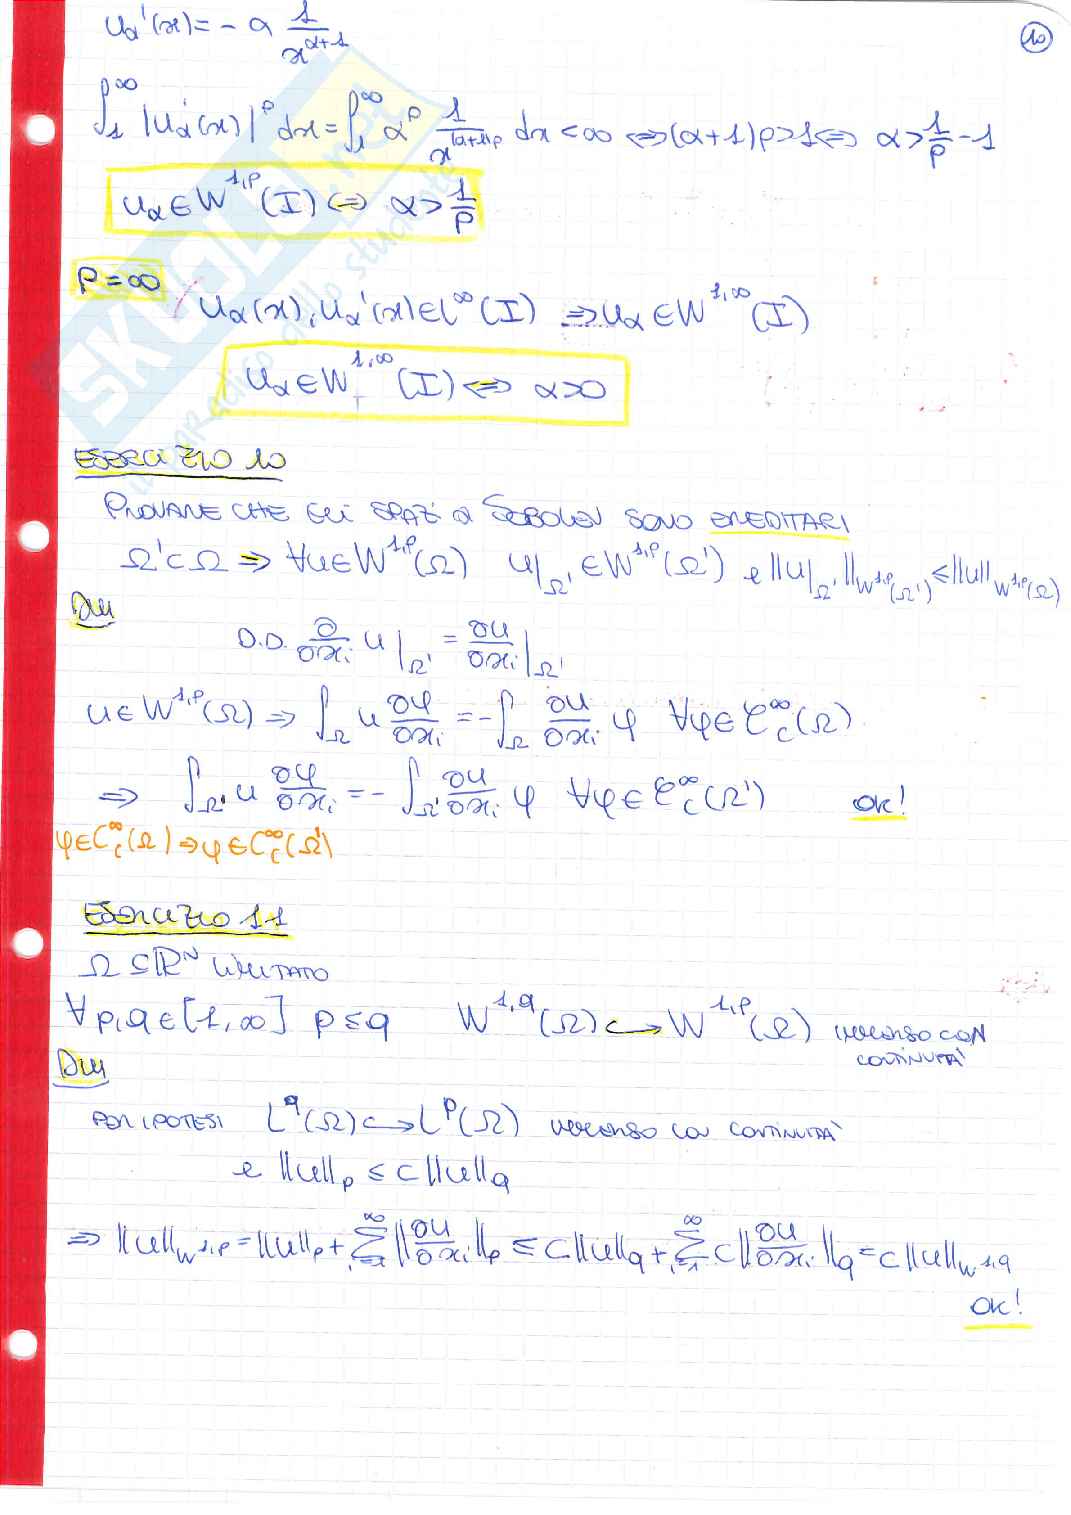 10
uα'(x) = - α 1/x^(α+1)
∫_1^∞ |uα'(x)|^p dx = ∫_1^∞ α^p 1/x^((α+1)p) dx < ∞ ⟺ (α+1)p > 1 ⟺ α > 1/p - 1
uα ∈ W^{1,p}(I) ⟺ α > 1/p
p = ∞
uα(x), uα'(x) ∈ L^∞(I) ⟹ uα ∈ W^{1,∞}(I)
uα ∈ W^{1,∞}(I) ⟺ α > 0
ESERCIZIO 10
PROVARE CHE GLI SPAZI DI SOBOLEV SONO EREDITARI
Ω' ⊂ Ω ⟹ ∀u ∈ W^{1,p}(Ω) u|_Ω' ∈ W^{1,p}(Ω') e ||u|_Ω'||_{W^{1,p}(Ω')} ≤ ||u||_{W^{1,p}(Ω)}
Dim
D.D. ∂/∂xi u|_Ω' = ∂u/∂xi|_Ω'
u ∈ W^{1,p}(Ω) ⟹ ∫_Ω u ∂φ/∂xi = - ∫_Ω ∂u/∂xi φ ∀φ ∈ C_c^∞(Ω)
⟹ ∫_Ω' u ∂φ/∂xi = - ∫_Ω' ∂u/∂xi φ ∀φ ∈ C_c^∞(Ω') OK!
φ ∈ C_c^∞(Ω) ⟹ φ ∈ C_c^∞(Ω')
ESERCIZIO 11
Ω ⊆ ℝ^N LIMITATO
∀p,q ∈ [1,∞] p ≤ q W^{1,q}(Ω) ↪ W^{1,p}(Ω) CON
CONTINUITÀ
Dim
PER IPOTESI L^q(Ω) ↪ L^p(Ω) CON CONTINUITÀ
e ||u||_p ≤ c||u||_q
⟹ ||u||_{W^{1,p}} = ||u||_p + Σ_{i=1}^∞ ||∂u/∂xi||_p ≤ c||u||_q + Σ_{i=1}^∞ c||∂u/∂xi||_q = c||u||_{W^{1,q}}
OK!
SKUOLA.net
il paradiso dello studente